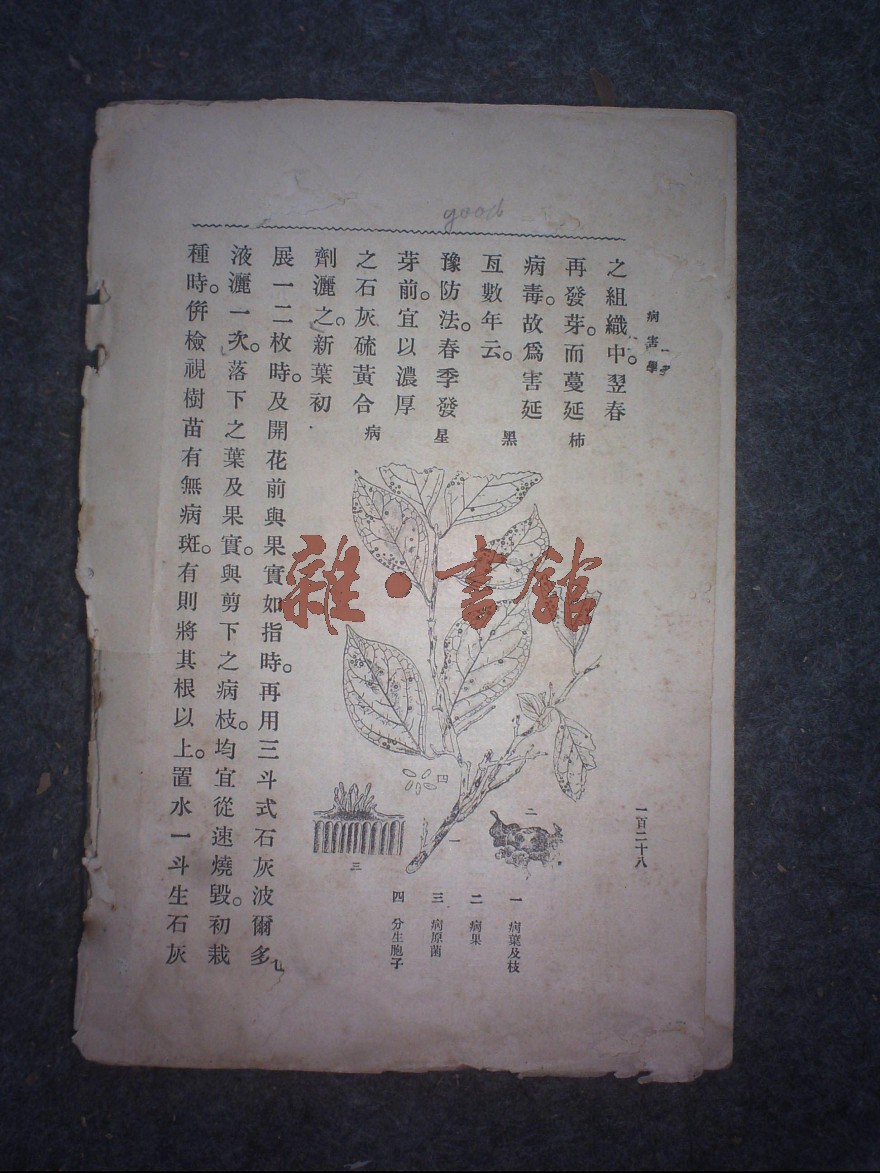 good
病害學
一百二十八
之組織中。翌春
再發芽。而蔓延
病毒。故爲害延
亙數年云。
豫防法。春季發
芽前。宜以濃厚
之石灰硫黃合
劑灑之。新葉初
展一二枚時。及開花前與果實如指時。再用三斗式石灰波爾多
液灑一次。落下之葉及果實。與剪下之病枝。均宜從速燒毀。初栽
種時。併檢視樹苗有無病斑。有則將其根以上。置水一斗生石灰
柿黑星病
一
二
三
四
一 病葉及枝
二 病果
三 病原菌
四 分生胞子
雜·書館